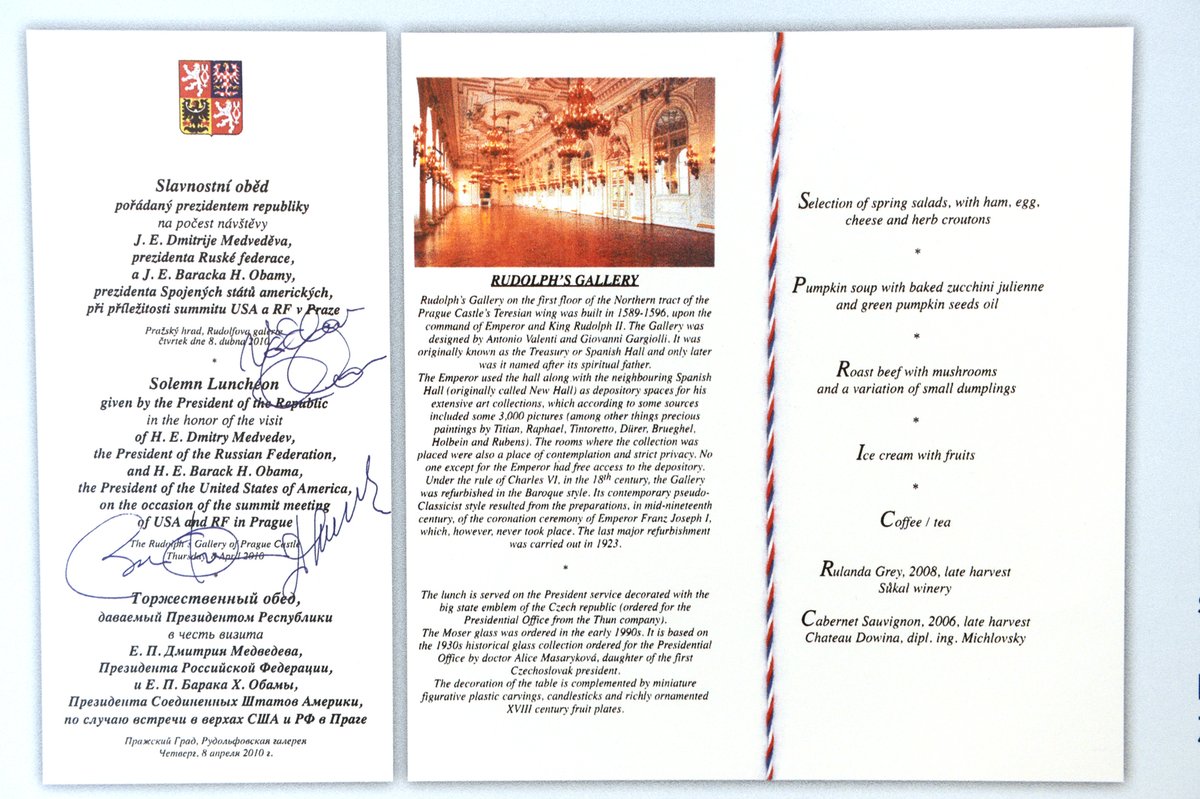 Slavnostní oběd
pořádaný prezidentem republiky
na počest návštěvy
J. E. Dmitrije Medveděva,
prezidenta Ruské federace,
a J. E. Baracka H. Obamy,
prezidenta Spojených států amerických,
při příležitosti summitu USA a RF v Praze
Pražský hrad, Rudolfova galerie
čtvrtek dne 8. dubna 2010
*
Solemn Luncheon
given by the President of the Republic
in the honor of the visit
of H. E. Dmitry Medvedev,
the President of the Russian Federation,
and H. E. Barack H. Obama,
the President of the United States of America,
on the occasion of the summit meeting
of USA and RF in Prague
The Rudolph's Gallery of Prague Castle
Thursday, 8 April 2010
*
Торжественный обед,
даваемый Президентом Республики
в честь визита
Е. П. Дмитрия Медведева,
Президента Российской Федерации,
и Е. П. Барака Х. Обамы,
Президента Соединенных Штатов Америки,
по случаю встречи в верхах США и РФ в Праге
Пражский Град, Рудольфовская галерея
Четверг, 8 апреля 2010 г.
RUDOLPH'S GALLERY
Rudolph's Gallery on the first floor of the Northern tract of the
Prague Castle's Teresian wing was built in 1589-1596, upon the
command of Emperor and King Rudolph II. The Gallery was
designed by Antonio Valenti and Giovanni Gargiolli. It was
originally known as the Treasury or Spanish Hall and only later
was it named after its spiritual father.
The Emperor used the hall along with the neighbouring Spanish
Hall (originally called New Hall) as depository spaces for his
extensive art collections, which according to some sources
included some 3,000 pictures (among other things precious
paintings by Titian, Raphael, Tintoretto, Dürer, Brueghel,
Holbein and Rubens). The rooms where the collection was
placed were also a place of contemplation and strict privacy. No
one except for the Emperor had free access to the depository.
Under the rule of Charles VI, in the 18th century, the Gallery
was refurbished in the Baroque style. Its contemporary pseudo-
Classicist style resulted from the preparations, in mid-nineteenth
century, of the coronation ceremony of Emperor Franz Joseph I,
which, however, never took place. The last major refurbishment
was carried out in 1923.
*
The lunch is served on the President service decorated with the
big state emblem of the Czech republic (ordered for the
Presidential Office from the Thun company).
The Moser glass was ordered in the early 1990s. It is based on
the 1930s historical glass collection ordered for the Presidential
Office by doctor Alice Masaryková, daughter of the first
Czechoslovak president.
The decoration of the table is complemented by miniature
figurative plastic carvings, candlesticks and richly ornamented
XVIII century fruit plates.
Selection of spring salads, with ham, egg,
cheese and herb croutons
*
Pumpkin soup with baked zucchini julienne
and green pumpkin seeds oil
*
Roast beef with mushrooms
and a variation of small dumplings
*
Ice cream with fruits
*
Coffee / tea
Rulanda Grey, 2008, late harvest
Sůkal winery
Cabernet Sauvignon, 2006, late harvest
Chateau Dowina, dipl. ing. Michlovsky